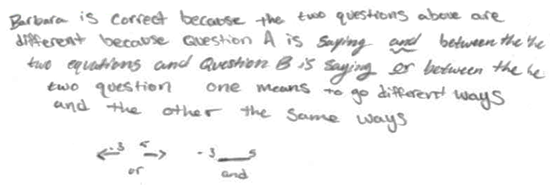 Barbara is correct because the two questions above are
different because Question A is saying and between the
two equations and Question B is saying or between the
two question one means to go different ways
and the other the same ways
-3 5 -3 5
or and